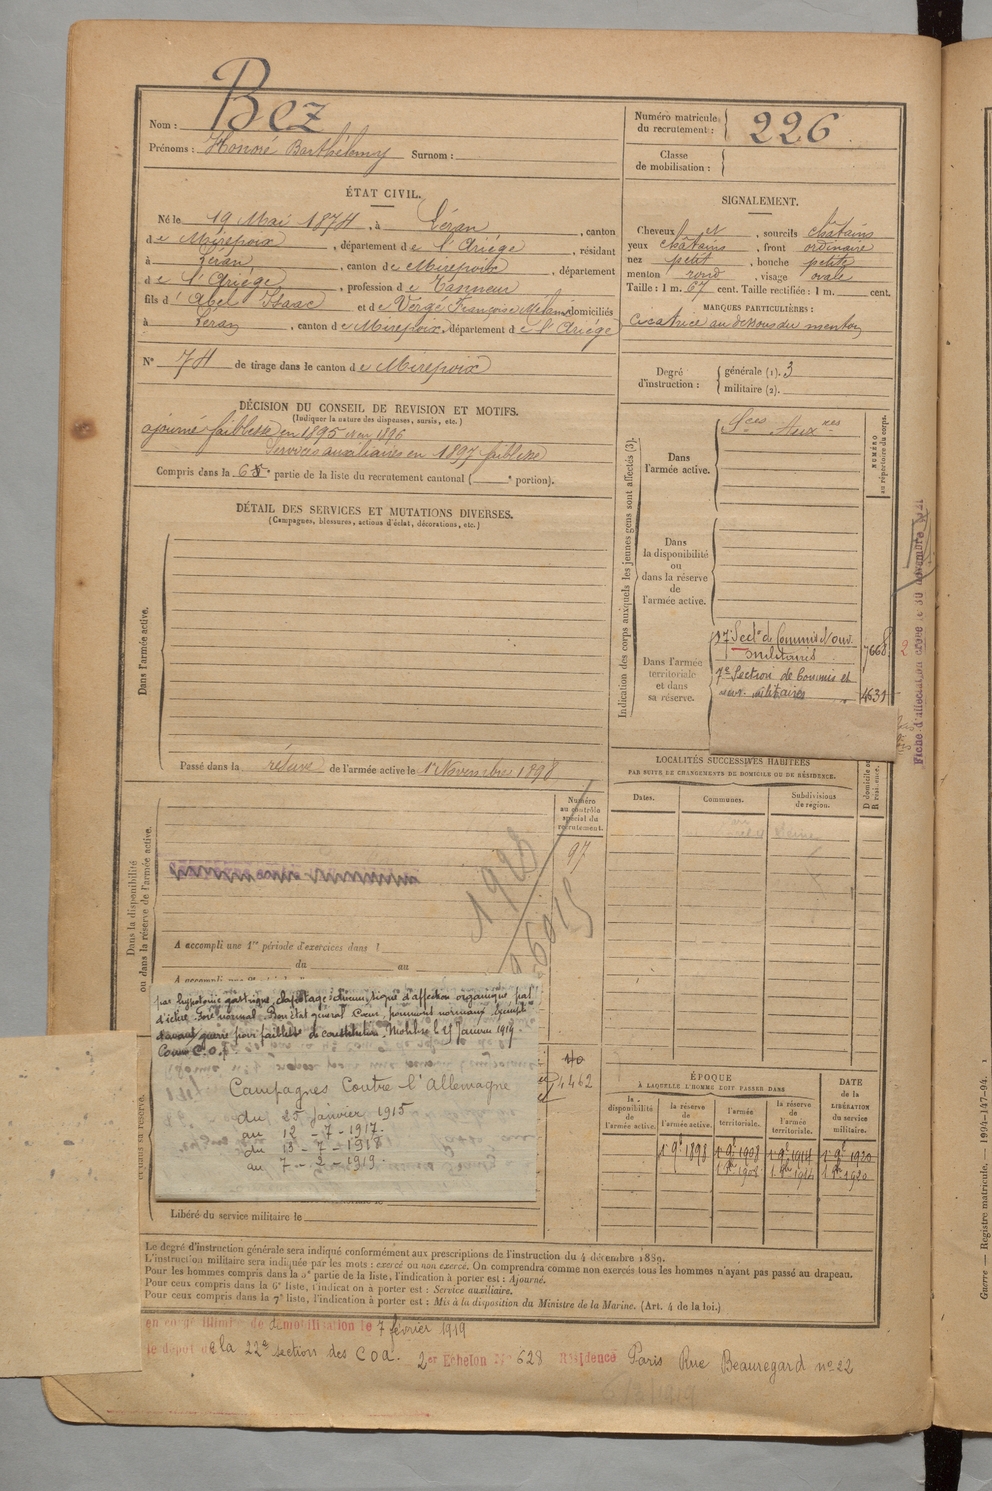 Nom : Bez
Prénoms : Honoré Barthélemy Surnom :
Numéro matricule du recrutement : 226
Classe de mobilisation :
ÉTAT CIVIL.
Né le 19 Mai 1874, à Léran, canton
de Mirepoix, département de l'Ariége, résidant
à Léran, canton de Mirepoix, département
de l'Ariége, profession de Tanneur
fils d'Abel Isaac et de Vergé Françoise Mélanie domiciliés
à Léran, canton de Mirepoix, département de l'Ariége
N° 74 de tirage dans le canton de Mirepoix
SIGNALEMENT.
Cheveux et, sourcils châtains
yeux châtains, front ordinaire
nez petit, bouche petite
menton rond, visage ovale
Taille : 1 m. 67 cent. Taille rectifiée : 1 m. cent.
MARQUES PARTICULIÈRES :
Cicatrice au dessous du menton
Degré d'instruction : générale (1). 3
militaire (2).
DÉCISION DU CONSEIL DE REVISION ET MOTIFS.
(Indiquer la nature des dispenses, sursis, etc.)
ajourné faiblesse en 1895 et en 1896
Services auxiliaires en 1897 faiblesse
Compris dans la 6e partie de la liste du recrutement cantonal ( e portion).
DÉTAIL DES SERVICES ET MUTATIONS DIVERSES.
(Campagnes, blessures, actions d'éclat, décorations, etc.)
Dans l'armée active.
Passé dans la réserve de l'armée active le 1er Novembre 1898
Indication des corps auxquels les jeunes gens sont affectés (3).
NUMÉRO au répertoire du corps.
Dans l'armée active.
Sces Auxres
Dans la disponibilité ou dans la réserve de l'armée active.
Dans l'armée territoriale et dans sa réserve.
17e Secton de Commis d'ouv.
militaires 7668
7e Section de Commis et
ouv. militaires 4631
2
Fiche d'affectation créée le 30 novembre 1921
LOCALITÉS SUCCESSIVES HABITÉES
PAR SUITE DE CHANGEMENTS DE DOMICILE OU DE RÉSIDENCE.
Dates. Communes. Subdivisions de région.
D domicile ou R résidence.
Seine
Dans la disponibilité ou dans la réserve de l'armée active.
Numéro au contrôle spécial du recrutement.
97
A accompli une 1re période d'exercices dans l
du au
par hypotonie gastrique, clapotage
d'ictère. Foie normal. Bon état général Cœur, poumons normaux. Exempté
avant guerre pour faiblesse de constitution. Mobilisé le 25 Janvier 1915
Comme C.O.A
Campagnes Contre l'Allemagne
du 25 janvier 1915
au 12 - 7 - 1917.
du 13 - 7 - 1918
au 7 - 2 - 1919.
4462
Libéré du service militaire le
ÉPOQUE
À LAQUELLE L'HOMME DOIT PASSER DANS
la disponibilité de l'armée active.
la réserve de l'armée active.
l'armée territoriale.
la réserve de l'armée territoriale.
DATE de la LIBÉRATION du service militaire.
1er 9bre 1898 1er 9bre 1908 1er 9bre 1914 1er 9bre 1920
Le degré d'instruction générale sera indiqué conformément aux prescriptions de l'instruction du 4 décembre 1889.
L'instruction militaire sera indiquée par les mots : exercé ou non exercé. On comprendra comme non exercés tous les hommes n'ayant pas passé au drapeau.
Pour les hommes compris dans la 5e partie de la liste, l'indication à porter est : Ajourné.
Pour ceux compris dans la 6e liste, l'indication à porter est : Service auxiliaire.
Pour ceux compris dans la 7e liste, l'indication à porter est : Mis à la disposition du Ministre de la Marine. (Art. 4 de la loi.)
en congé illimité de démobilisation le 7 février 1919
le dépôt de la 22e section des COA. 2er Echelon N° 628 Résidence Paris Rue Beauregard n° 22
Guerre — Registre matricule. — 1994-147-94.